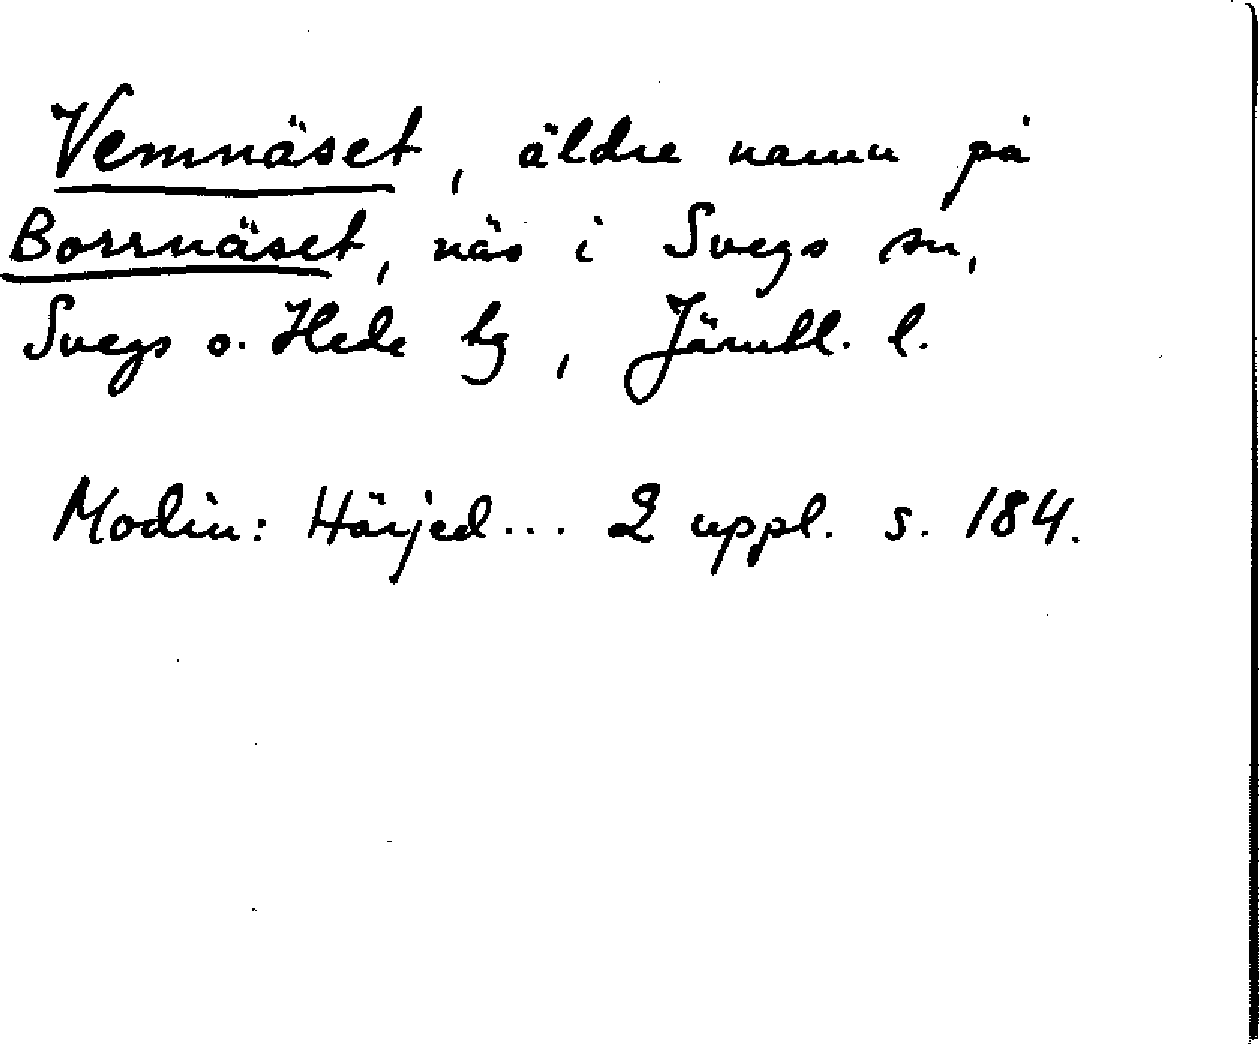 Vemnäset, äldre namn på
Borrnäset, näs i Svegs sn,
Svegs o. Hede tg, Jämtl. l.
Modin: Härjed... 2 uppl. s. 184.